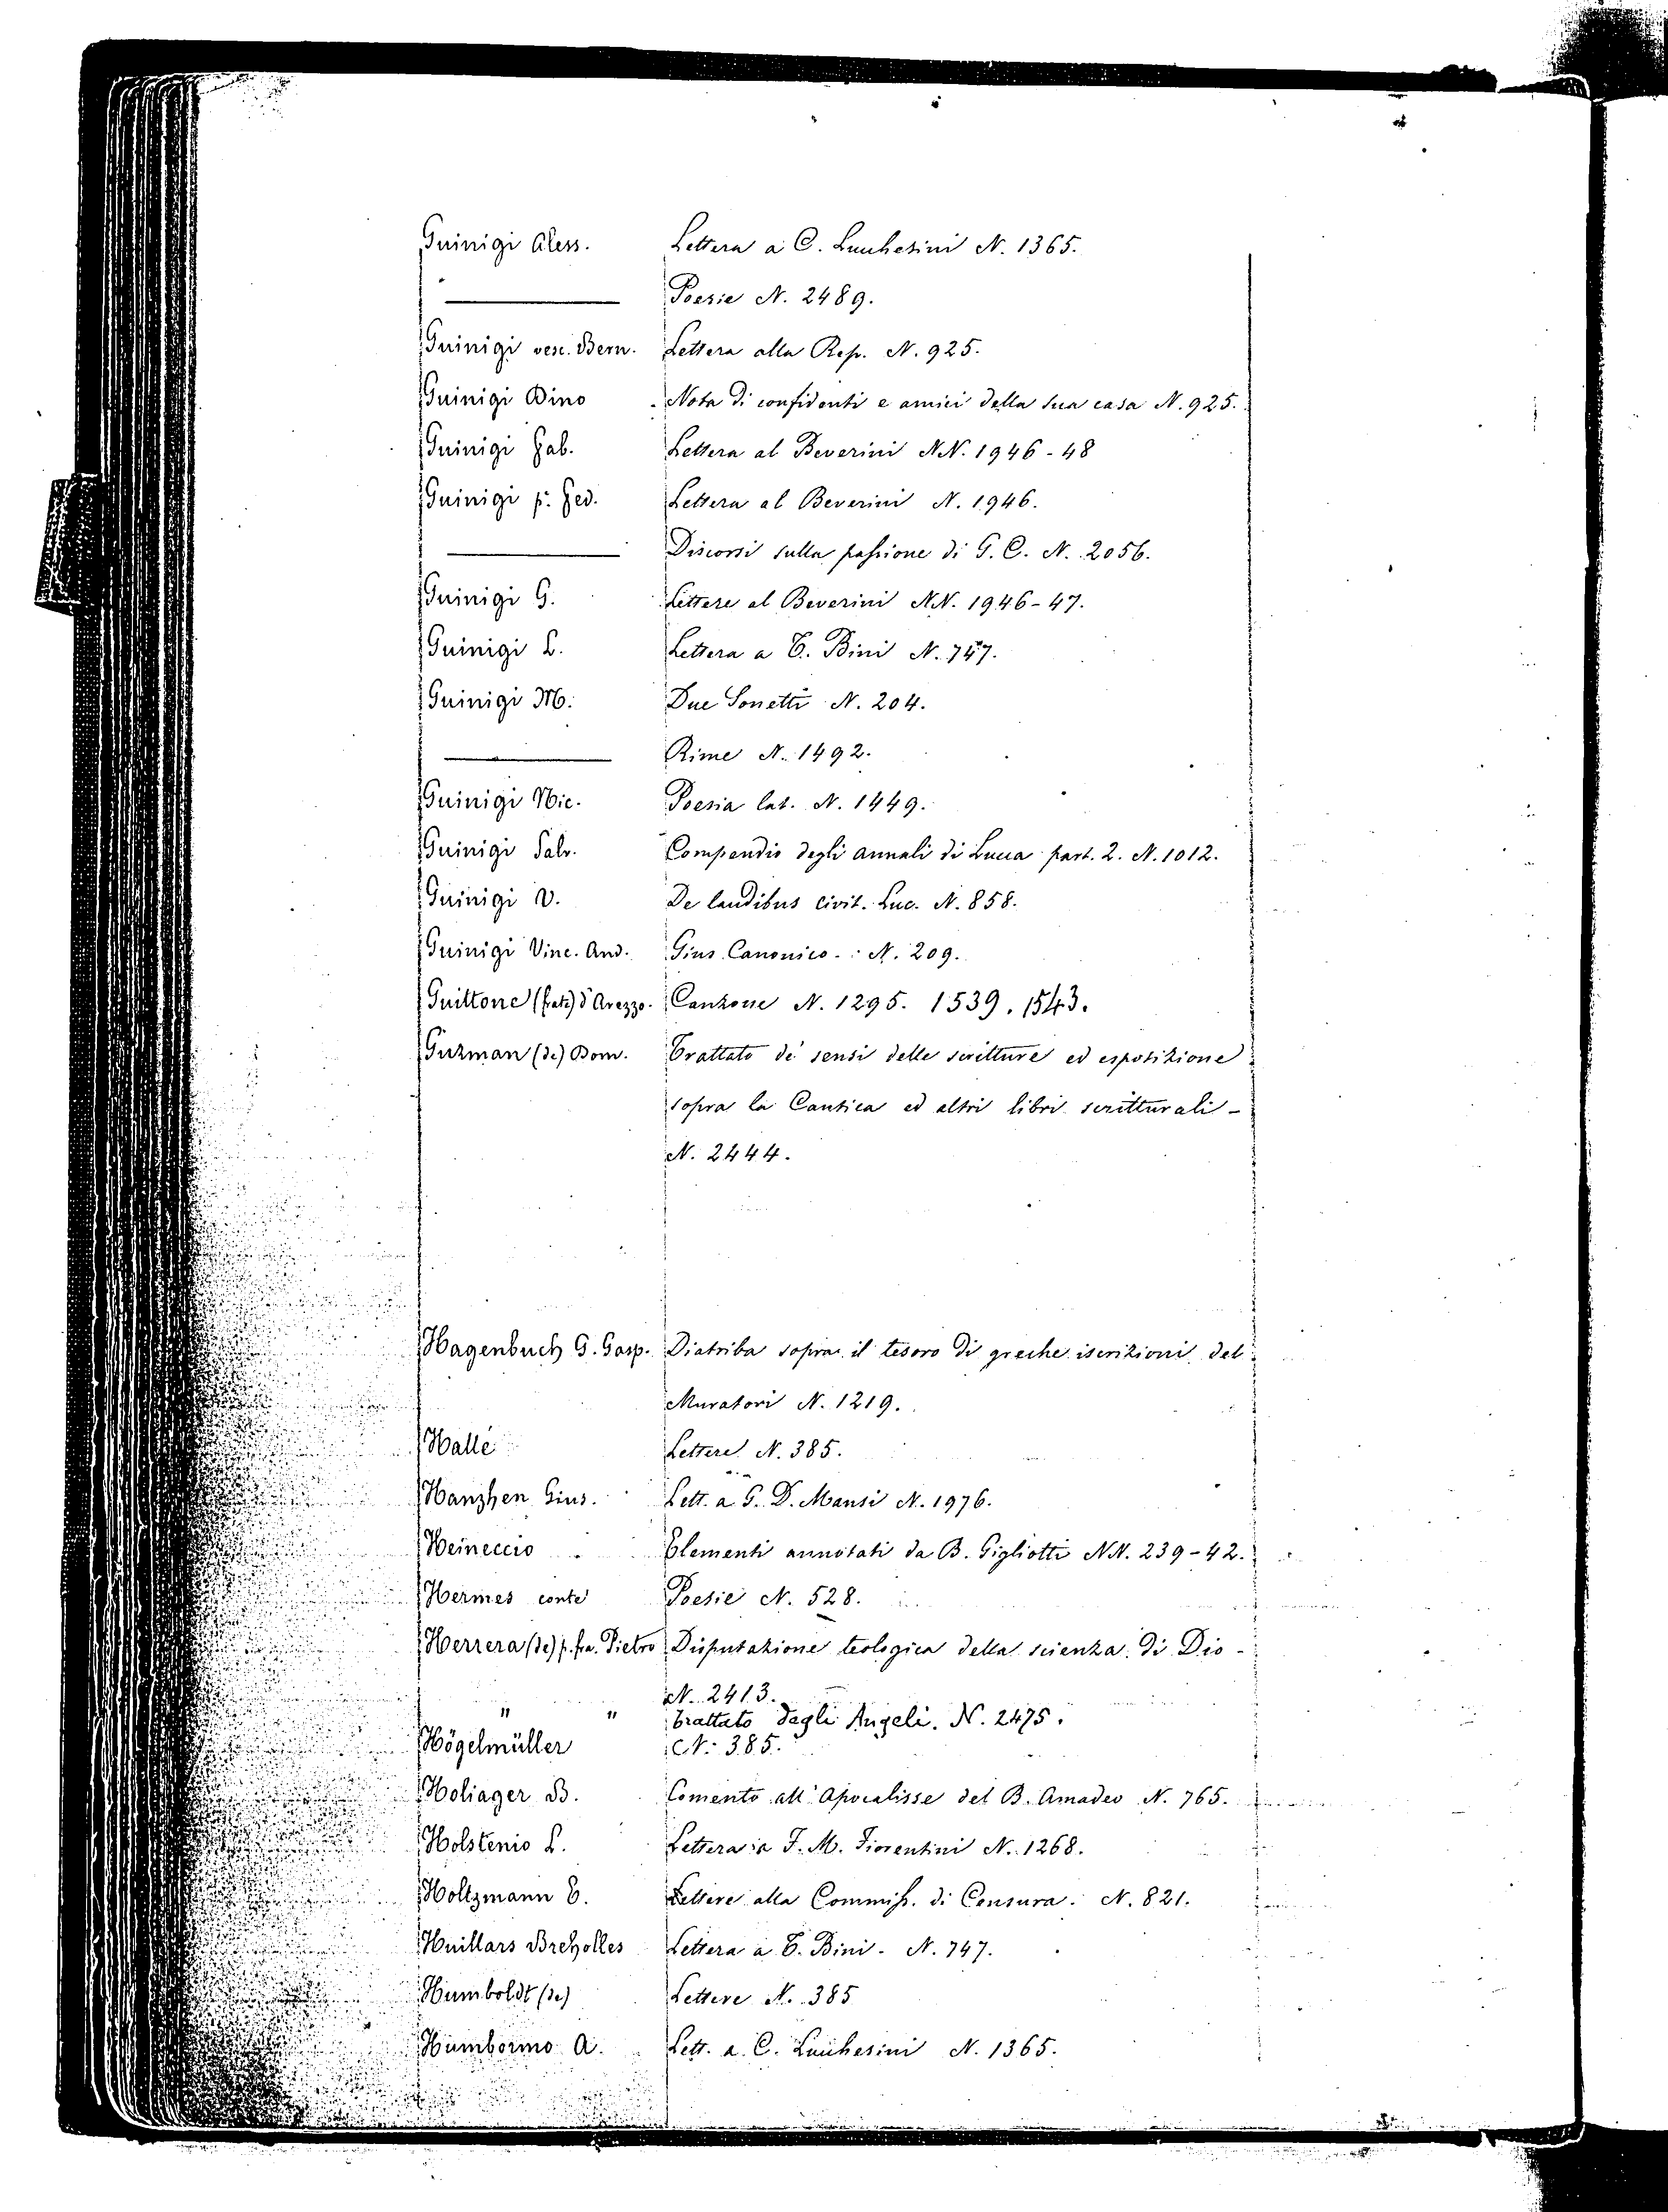 Guinigi Aless. Lettera a C. Lucchesini N. 1365.
Poesie N. 2489.
Guinigi vesc. Bern. Lettera alla Rep. N. 925.
Guinigi Dino Nota di confidenti e amici della sua casa N. 925.
Guinigi Fab. Lettera al Beverini NN. 1946-48
Guinigi p. Fed. Lettera al Beverini N. 1946.
Discorsi sulla passione di G. C. N. 2056.
Guinigi G. Lettere al Beverini NN. 1946-47.
Guinigi L. Lettera a T. Bini N. 747.
Guinigi M. Due Sonetti N. 204.
Rime N. 1492.
Guinigi Nic. Poesia lat. N. 1449.
Guinigi Salv. Compendio degli annali di Lucca part. 2. N. 1012.
Guinigi V. De laudibus civit. Luc. N. 858.
Guinigi Vinc. And. Gius Canonico. N. 209.
Guittone (frate) d'Arezzo. Canzone N. 1295. 1539. 1543.
Guzman (de) Dom. Trattato de' sensi delle scritture ed esposizione
sopra la Cantica ed altri libri scritturali -
N. 2444.
Hagenbuch G. Gasp. Diatriba sopra il tesoro di greche iscrizioni del
Muratori N. 1219.
Hallé Lettere N. 385.
Hanzhen Gius. Lett. a G. D. Mansi N. 1976.
Heineccio Elementi annotati da B. Gigliotti NN. 239-42.
Hermes conte Poesie N. 528.
Herrera (de) p. fra. Pietro Disputazione teologica della scienza di Dio -
N. 2413.
" " Trattato degli Angeli. N. 2475.
Högelmüller N. 385.
Holiager B. Comento all' Apocalisse del B. Amadeo N. 765.
Holstenio L. Lettera a F. M. Fiorentini N. 1268.
Holtzmann E. Lettere alla Commiss. di Censura. N. 821.
Huillars Breholles Lettera a T. Bini. N. 747.
Humboldt (de) Lettere N. 385
Humbormo A. Lett. a C. Lucchesini N. 1365.